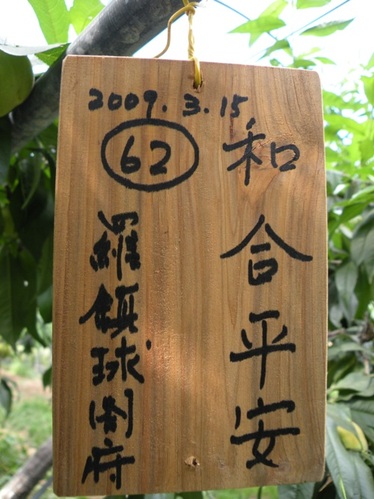 2009.3.15
62
和合平安
羅鎮球闔府